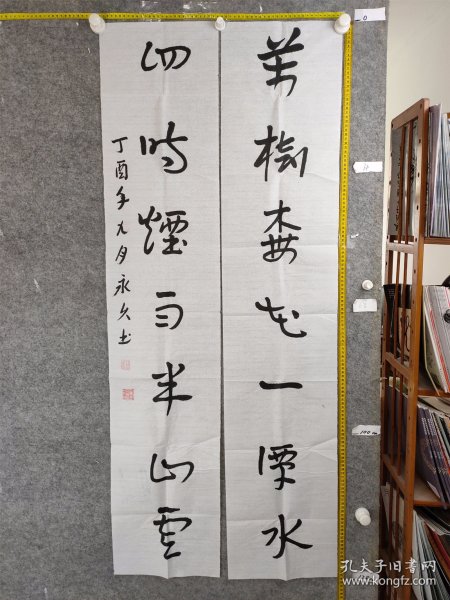 萬樹梅花一潭水
四時煙雨半山雲
丁酉年九月永久书
0
100 cm
孔夫子旧书网
www.kongfz.com